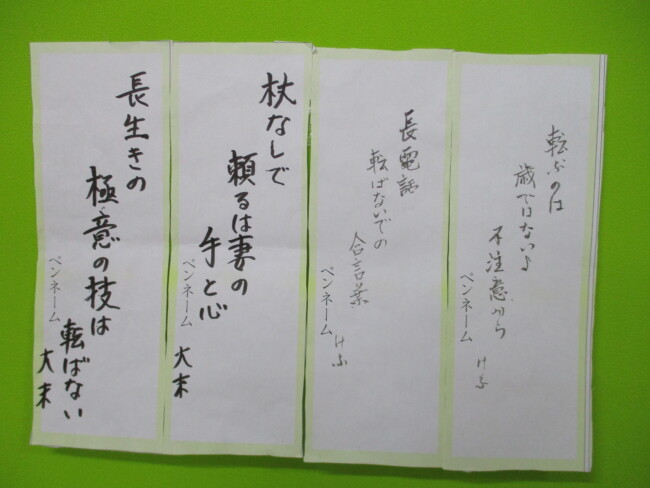 転ぶのは
歳ではないよ
不注意から
ペンネーム けふ
長電話
転ばないでの
合言葉
ペンネーム けふ
杖なしで
頼るは妻の
手と心
ペンネーム 大末
長生きの
極意の技は
転ばない
ペンネーム 大末